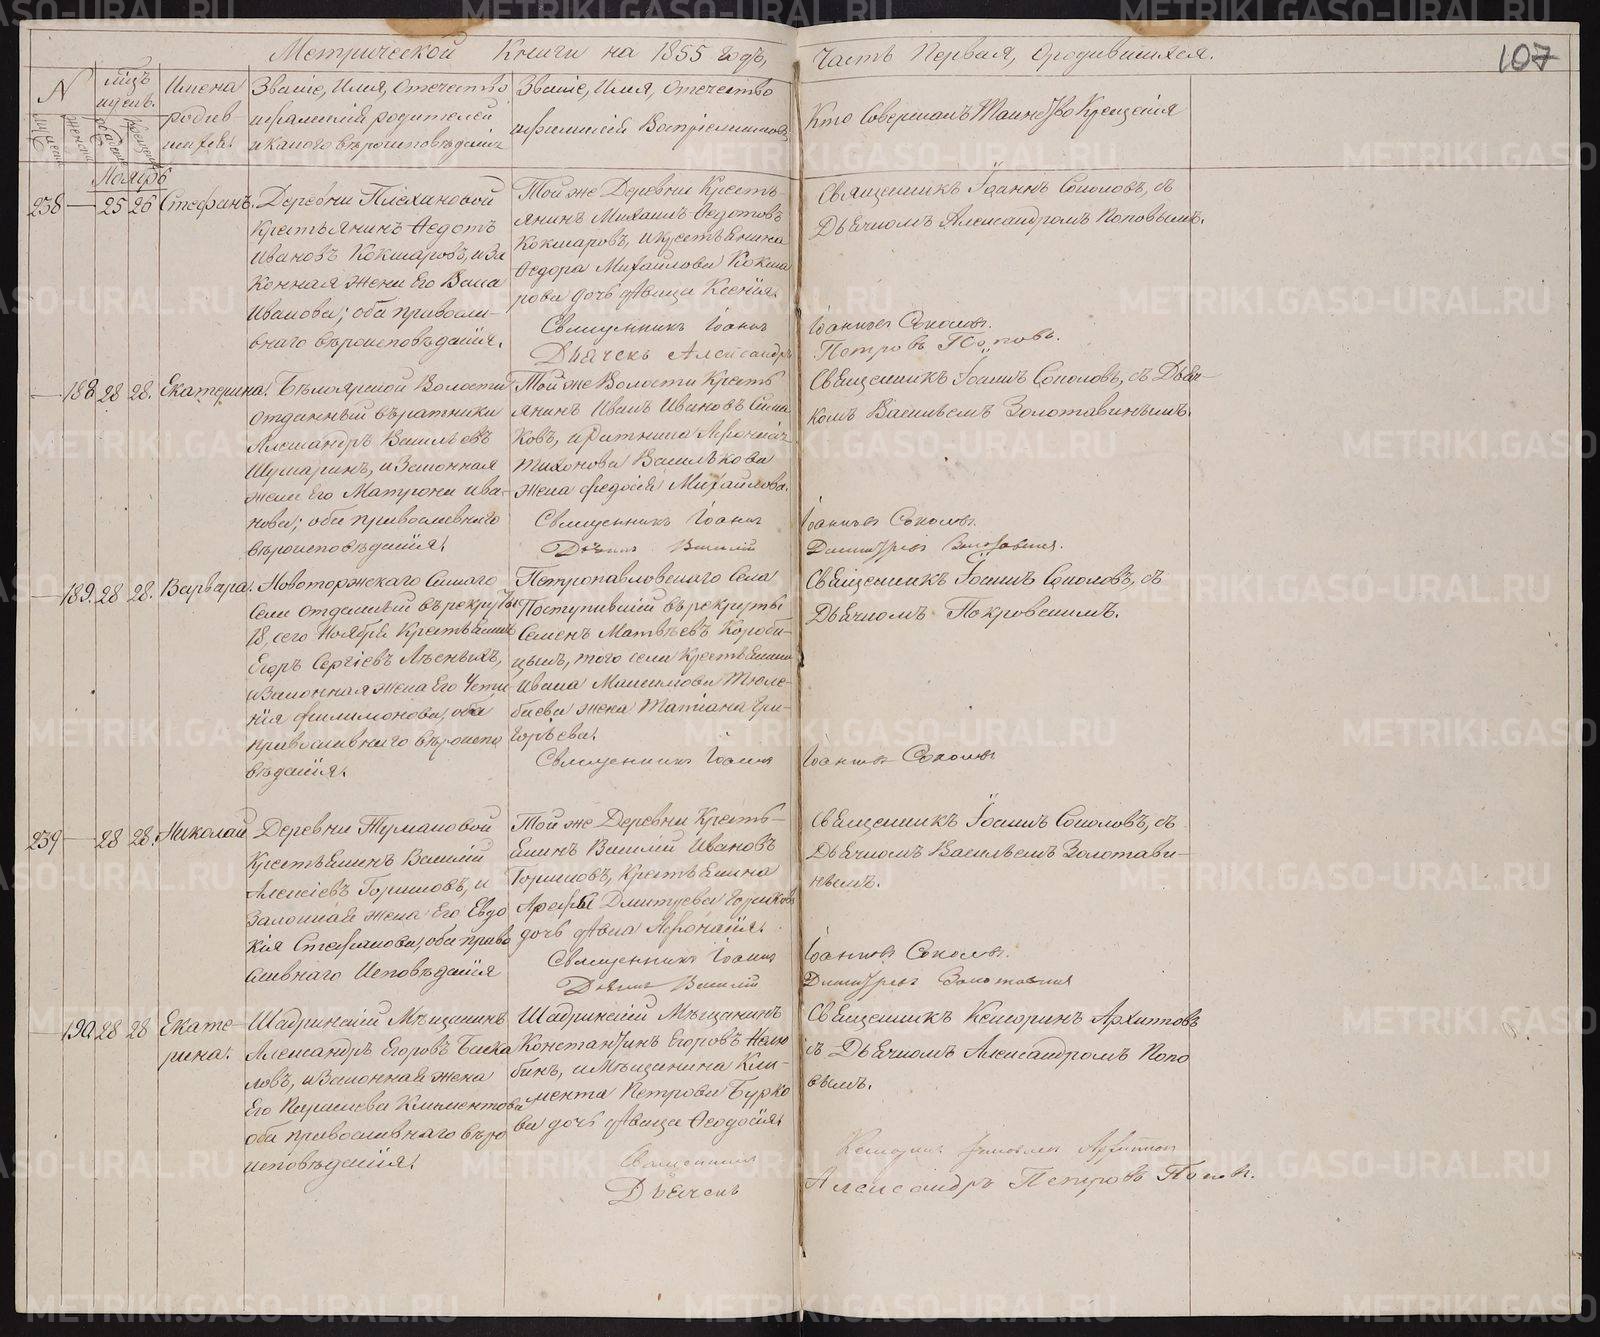 Метрической Книги на 1855 годъ, Часть Первая, о родившихся.
107
N
Имена родившихся
Званіе, Имя, Отечество и фамилія родителей и какого вѣроисповѣданія
Званіе, Имя, Отечество и фамилія Воспріемниковъ
Кто Совершалъ Таинство Крещенія
Ноябрь
238 — 25 26 Стефанъ.
Деревни Плехиновой
Крестьянинъ Ѳедотъ
Ивановъ Кокшаровъ, и За
конная Жена Его Васса
Иванова; оба православ-
наго вѣроисповѣданія.
Той же Деревни Кресть-
янинъ Михаилъ Ѳедотовъ
Кокшаровъ, и крестьянина
Ѳедора Михайлова Кокша
рова дочь дѣвица Ксенія.
Священникъ Іоаннъ
Дьячекъ Александръ
Священникъ Іоаннъ Соколовъ, съ
Дьячкомъ Александромъ Поповымъ.
Іоанновъ Соколовъ.
Петровъ Поповъ.
— 188 28 28. Екатерина.
Бѣлоярской Волости
отданный въ ратники
Александръ Васильевъ
Шумаринъ, и Законная
жена Его Матрона Ива-
нова; оба православнаго
вѣроисповѣданія.
Той же Волости Кресть
янинъ Иванъ Ивановъ
ковъ, и ратника
Тихонова Василькова
жена Федосія Михайлова.
Священникъ Іоаннъ
Дьячекъ Василій
Священникъ Іоаннъ Соколовъ, съ Дьяч-
комъ Васильемъ Золотавинымъ.
Іоанновъ Соколовъ.
Димитріевъ Золотавинъ.
— 189. 28 28. Варвара.
Новоторжскаго
Села отданный въ рекруты
18, сего Ноября Крестьянинъ
Егоръ Сергіевъ
и Законная жена Его
нія Филимонова, оба
православнаго вѣроиспо
вѣданія.
Петропавловскаго Села
Поступившій въ рекруты
Семенъ Матвѣевъ Короби-
цынъ, того села Крестьянина
Ивана Максимова Тюле-
баева жена Татіана Гри-
горьева.
Священникъ Іоаннъ
Священникъ Іоаннъ Соколовъ, съ
Дьячкомъ Покровскимъ.
Іоанновъ Соколовъ
239 — 28 28. Николай
Деревни Тумановой
Крестьянинъ Василій
Алексіевъ Горшковъ, и
Законная жена Его Евдо
кія Стефанова, оба право
славнаго Исповѣданія
Той же Деревни Кресть-
янинъ Василій Ивановъ
Горшковъ, Крестьянина
Дмитріева Горшкова
дочь дѣвица
Священникъ Іоаннъ
Дьячекъ Василій
Священникъ Іоаннъ Соколовъ, съ
Дьячкомъ Васильемъ Золотави-
нымъ.
Іоанновъ Соколовъ.
Димитріевъ Золотавинъ
— 190. 28 28 Екате-
рина.
Шадринскій Мѣщанинъ
Александръ Егоровъ Баска
ловъ, и Законная жена
Его Параскева Климентова
оба православнаго вѣро
исповѣданія.
Шадринскій Мѣщанинъ
Константинъ Егоровъ
бинъ, и Мѣщанина Кли-
мента Петрова Бурко
ва дочь дѣвица Ѳеодосія.
Священникъ
Дьячекъ
Священникъ Кесторинъ Архиповъ
съ Дьячкомъ Александромъ Попо
вымъ.
Александръ Петровъ Поповъ.
METRIKI.GASO-URAL.RU